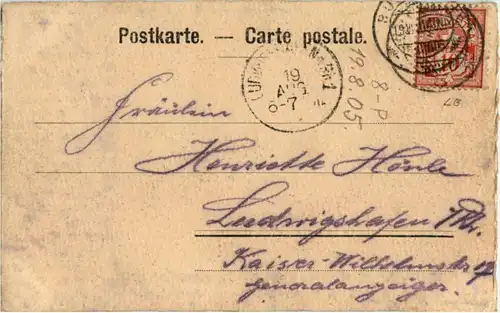 Postkarte. — Carte postale.
19
AUG
6-7
8-P
19.8.05.
Fräulein
Henriette Hönle
Ludwigshafen a/Rh.
Kaiser-Wilhelmstr
Generalanzeiger.